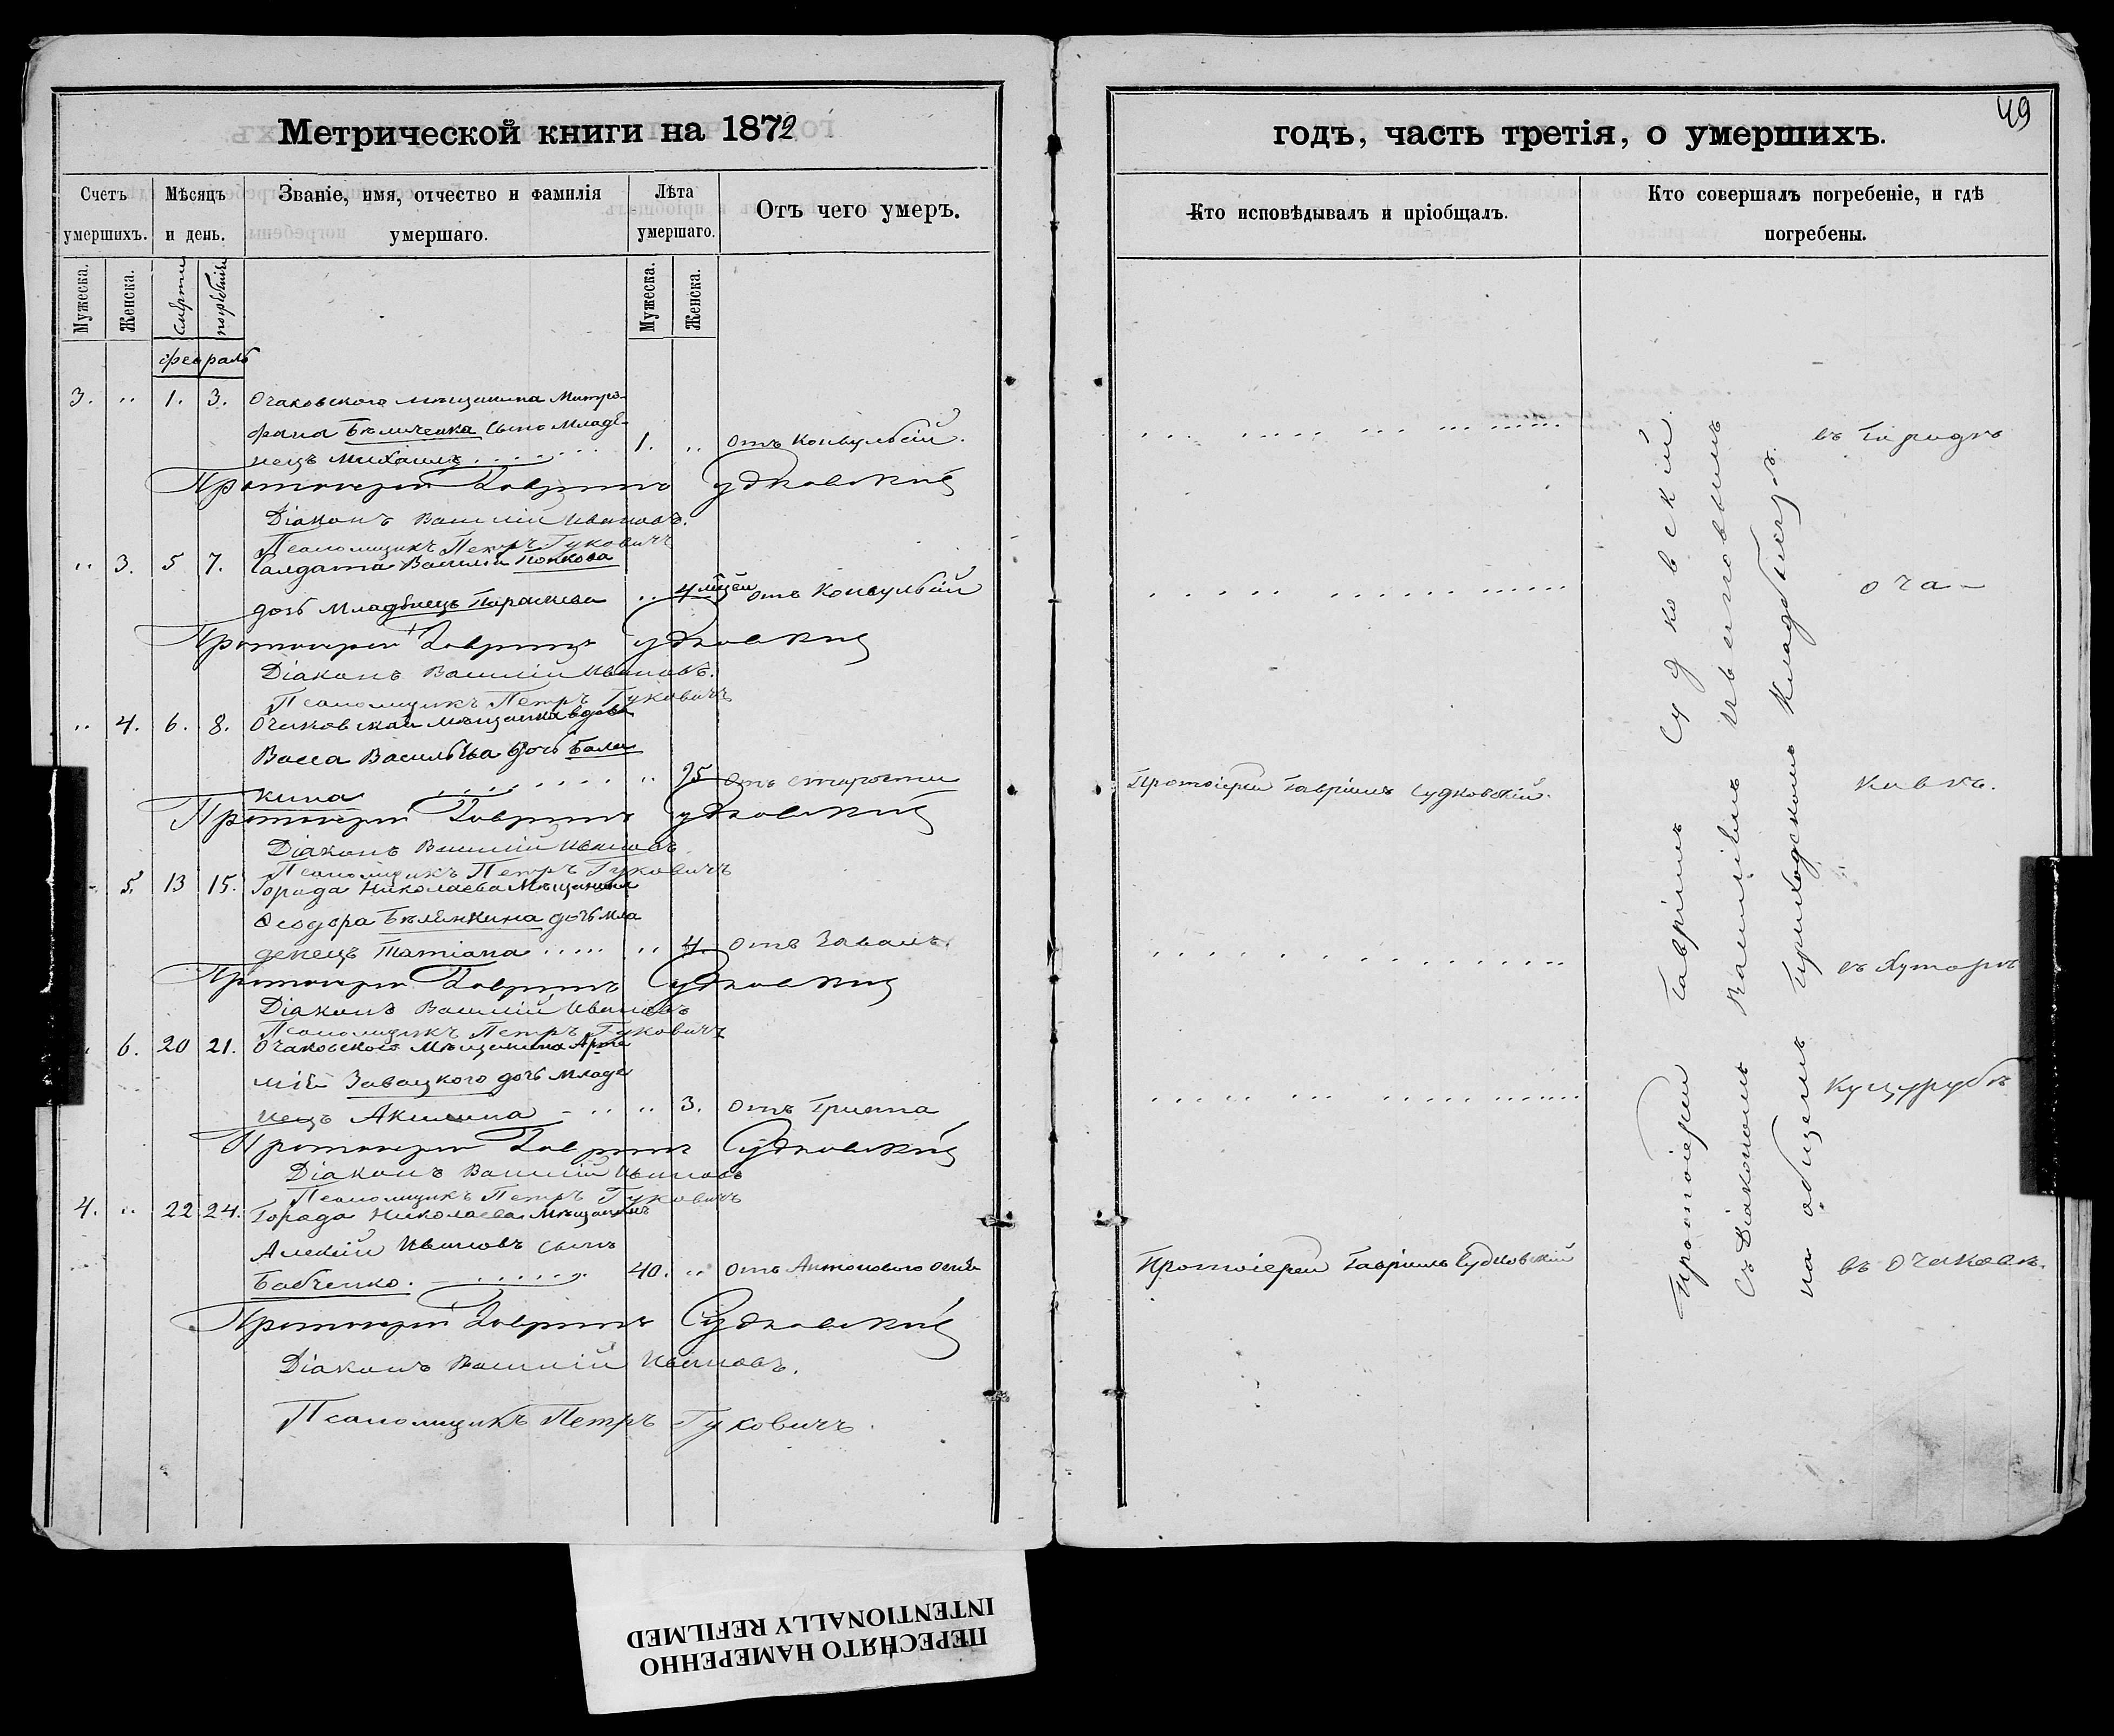 Метрической книги на 1872
Счетъ умершихъ.
Мѣсяцъ и день.
Званіе, имя, отчество и фамилія умершаго.
Лѣта умершаго.
Отъ чего умеръ.
Мужеска.
Женска.
смерти
погребенія
Мужеска.
Женска.
февраль
3. „ 1. 3. Очаковского мѣщанина Митро-
фана Бѣличенка сынъ младе-
нецъ Михаилъ 1. „ отъ Конвульсій.
Протоіерей Гавріилъ Судковскій
Діаконъ Василій Ивановъ.
Псаломщикъ Петръ Гуковичъ
„ 3. 5 7. Салдата Василія Попкова
дочь младенецъ Параскева „ 4 мѣсец отъ Конвульсій
Протоіерей Гавріилъ Судковскій
Діаконъ Василій Ивановъ.
Псаломщикъ Петръ Гуковичъ
„ 4. 6. 8. Очаковская мѣщанка вдова
Васса Васильева дочь Бала
кина „ 95 отъ старости
Протоіерей Гавріилъ Судковскій
Діаконъ Василій Ивановъ.
Псаломщикъ Петръ Гуковичъ
5. 13 15. Города Николаева Мѣщанина
Ѳеодора Бѣлинкина дочь мла
денецъ Татіана „ 4. отъ
Протоіерей Гавріилъ Судковскій
Діаконъ Василій Ивановъ
Псаломщикъ Петръ Гуковичъ
6. 20 21. Очаковского Мѣщанина Арте
мія Завацкого дочь младе
нецъ Акилина „ 3. отъ
Протоіерей Гавріилъ Судковскій
Діаконъ Василій Ивановъ
Псаломщикъ Петръ Гуковичъ
4. „ 22 24. Города Николаева Мѣщанинъ
Алексій Ивановъ сынъ
Бабченко. 40. „ отъ Антонового огня
Протоіерей Гавріилъ Судковскій
Діаконъ Василій Ивановъ.
Псаломщикъ Петръ Гуковичъ.
49
годъ, часть третія, о умершихъ.
Кто исповѣдывалъ и пріобщалъ.
Кто совершалъ погребеніе, и гдѣ погребены.
Протоіерей Гавріилъ Судковскій.
Протоіерей Гавріилъ Судковскій
Протоіерей Гавріилъ Судковскій.
съ Діакономъ Василіемъ Ивановымъ
на общемъ приходскомъ кладбищѣ.
въ городѣ
оча-
ковѣ.
въ Хуторѣ
Куцурубѣ
въ Очаковѣ.
ПЕРЕСНЯТО НАМЕРЕННО
INTENTIONALLY REFILMED